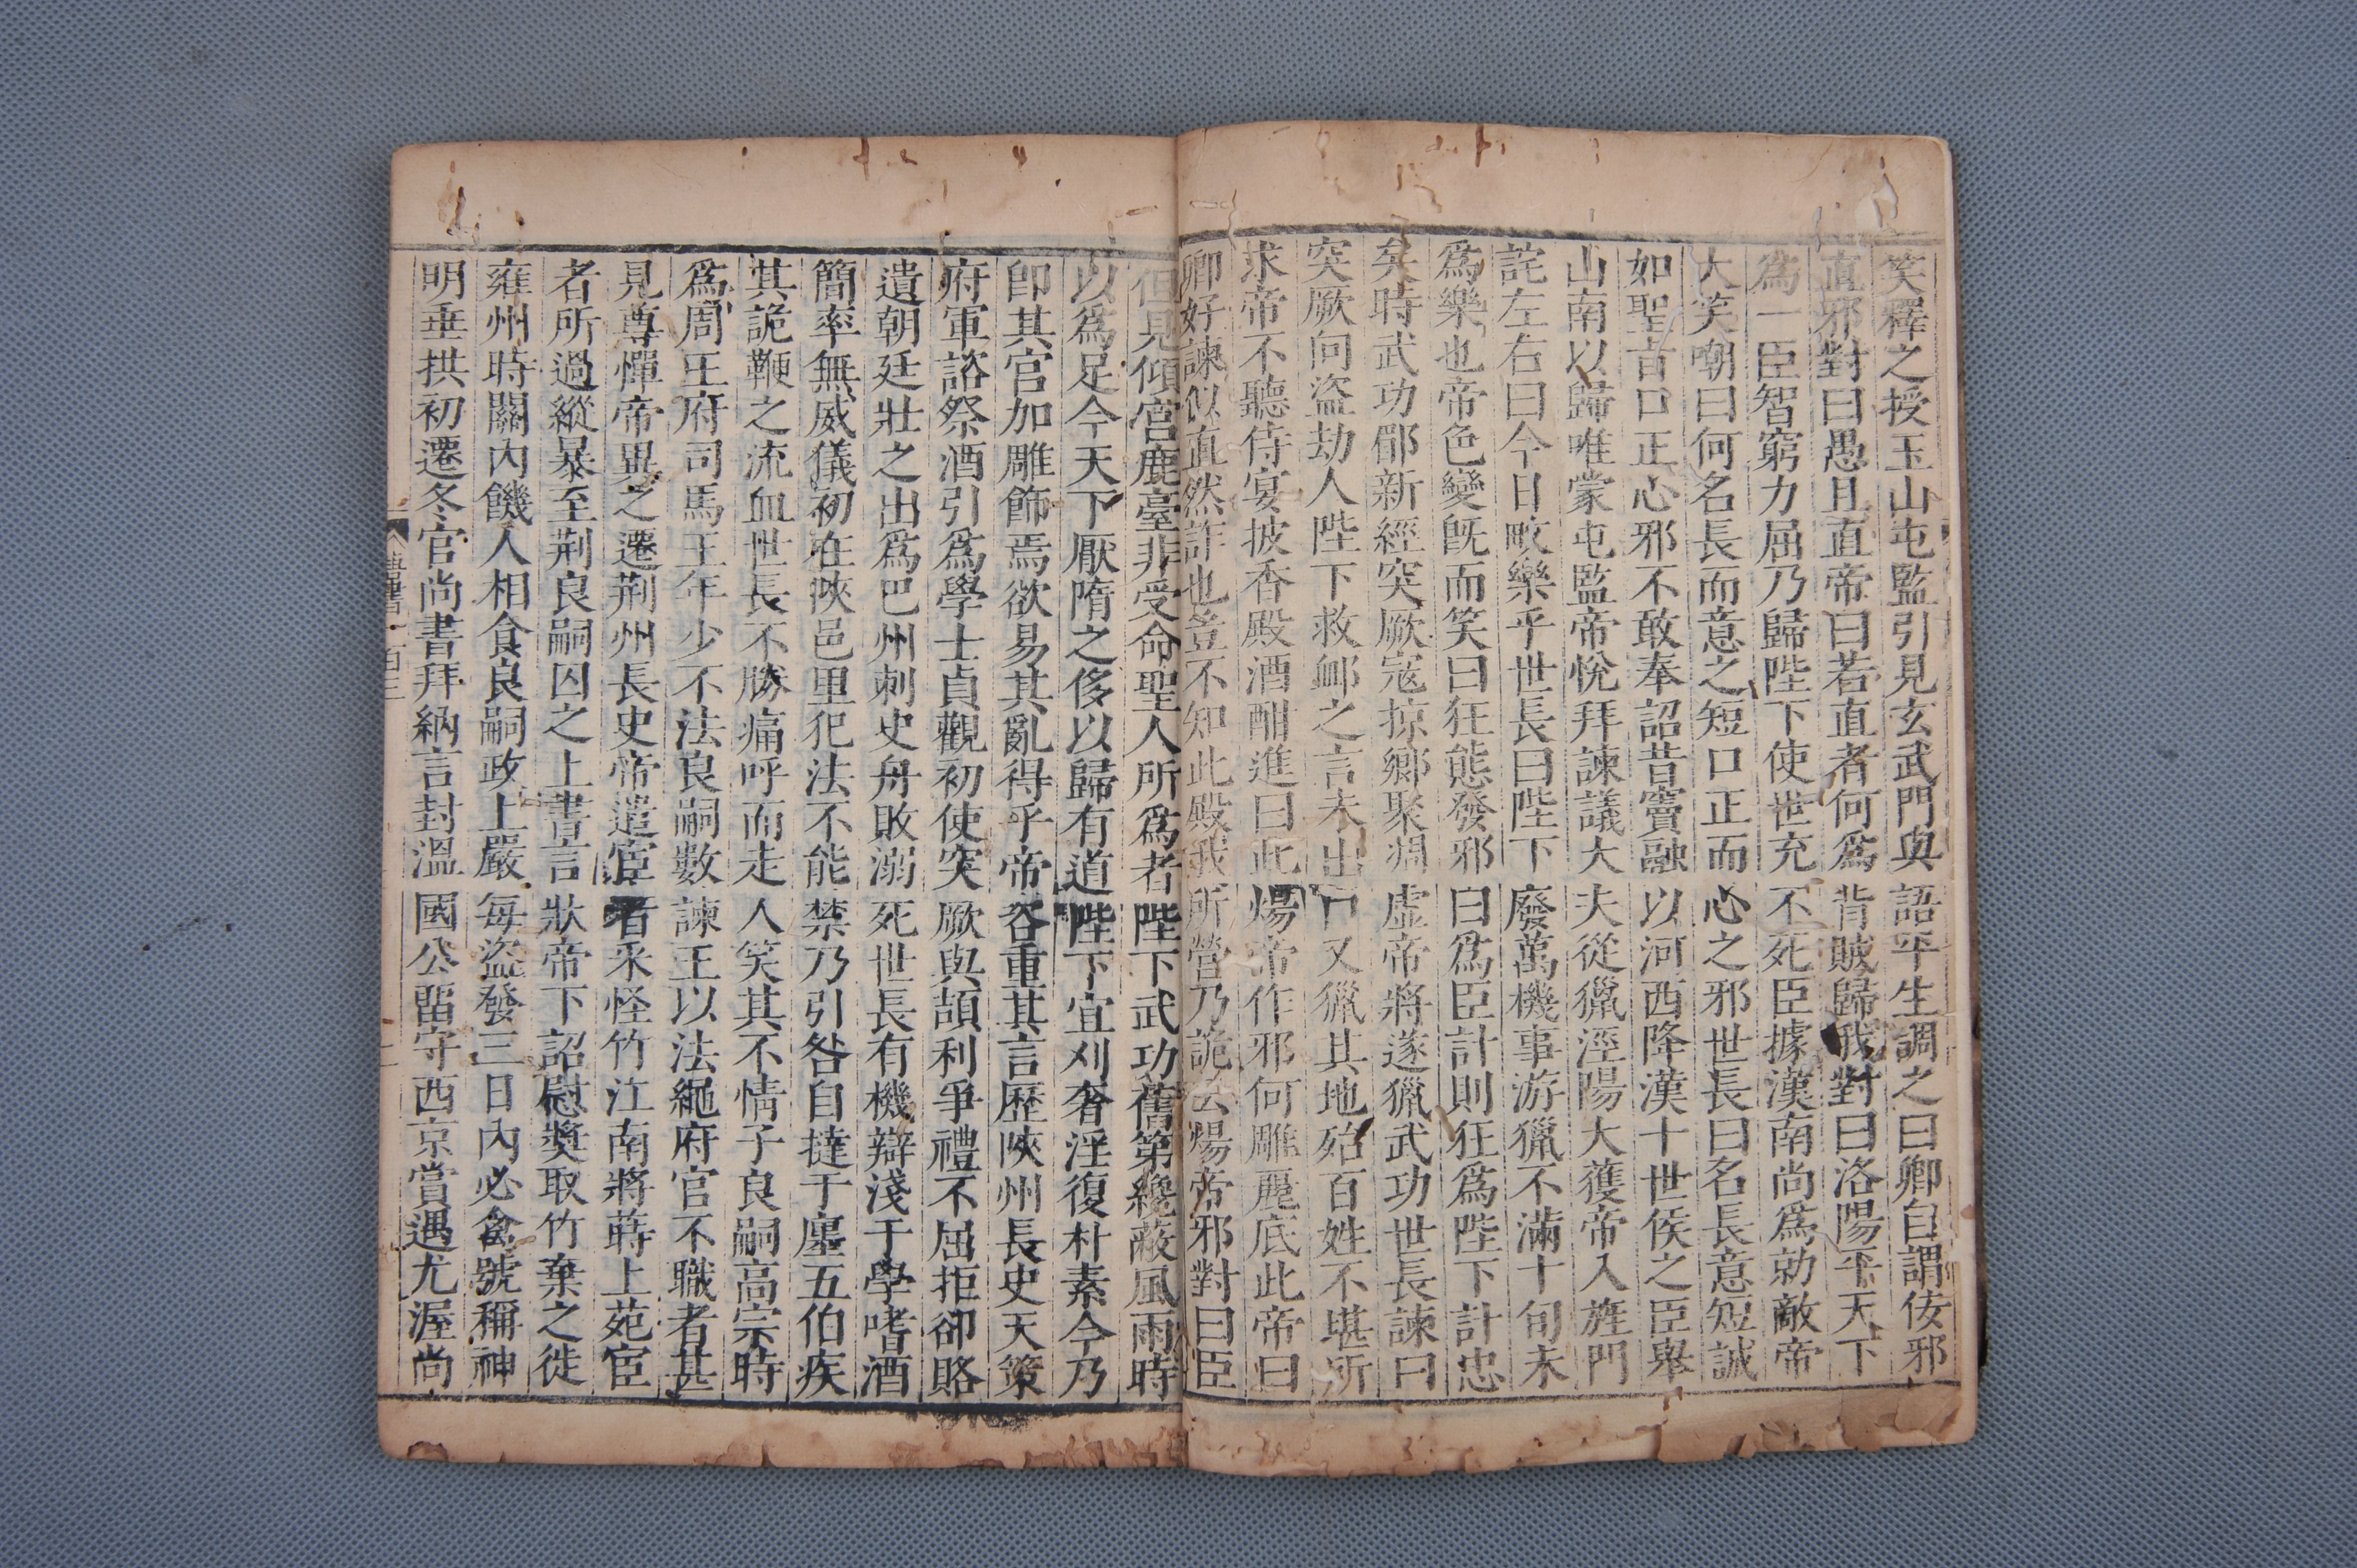 笑釋之授玉山屯監引見玄武門與語平生調之曰卿自謂佞邪
直邪對曰愚且直帝曰若直者何爲背賊歸我對曰洛陽平天下
爲一臣智窮力屈乃歸陛下使世充不死臣據漢南尚爲勍敵帝
大笑嘲曰何名長而意之短口正而心之邪世長曰名長意短誠
如聖旨口正心邪不敢奉詔昔竇融以河西降漢十世侯之臣舉
山南以歸唯蒙屯監帝悅拜諫議大夫從獵涇陽大獲帝入旌門
詫左右曰今日畋樂乎世長曰陛下廢萬機事游獵不滿十旬未
爲樂也帝色變旣而笑曰狂態發邪曰爲臣計則狂爲陛下計忠
矣時武功郿新經突厥寇掠鄉聚凋虛帝將遂獵武功世長諫曰
突厥向盜劫人陛下救卹之言未出口又獵其地殆百姓不堪所
求帝不聽侍宴披香殿酒酣進曰此煬帝作邪何雕麗底此帝曰
卿好諫似直然詐也豈不知此殿我所營乃詭云煬帝邪對曰臣
但見傾宮鹿臺非受命聖人所爲者陛下武功舊第纔蔽風雨時
以爲足今天下厭隋之侈以歸有道陛下宜刈奢淫復朴素今乃
卽其宮加雕飾焉欲易其亂得乎帝咨重其言歷陝州長史天策
府軍諮祭酒引爲學士貞觀初使突厥與頡利爭禮不屈拒卻賂
遺朝廷壯之出爲巴州刺史舟敗溺死世長有機辯淺于學嗜酒
簡率無威儀初在陝邑里犯法不能禁乃引咎自撻于廛五伯疾
其詭鞭之流血世長不勝痛呼而走人笑其不情子良嗣高宗時
爲周王府司馬王年少不法良嗣數諫王以法繩府官不職者甚
見尊憚帝異之遷荆州長史帝遣宦者采怪竹江南將蒔上苑宦
者所過縱暴至荆良嗣囚之上書言狀帝下詔慰奬取竹棄之徙
雍州時關內饑人相食良嗣政上嚴每盜發三日內必禽號稱神
明垂拱初遷冬官尚書拜納言封溫國公留守西京賞遇尤渥尚
唐書一百三